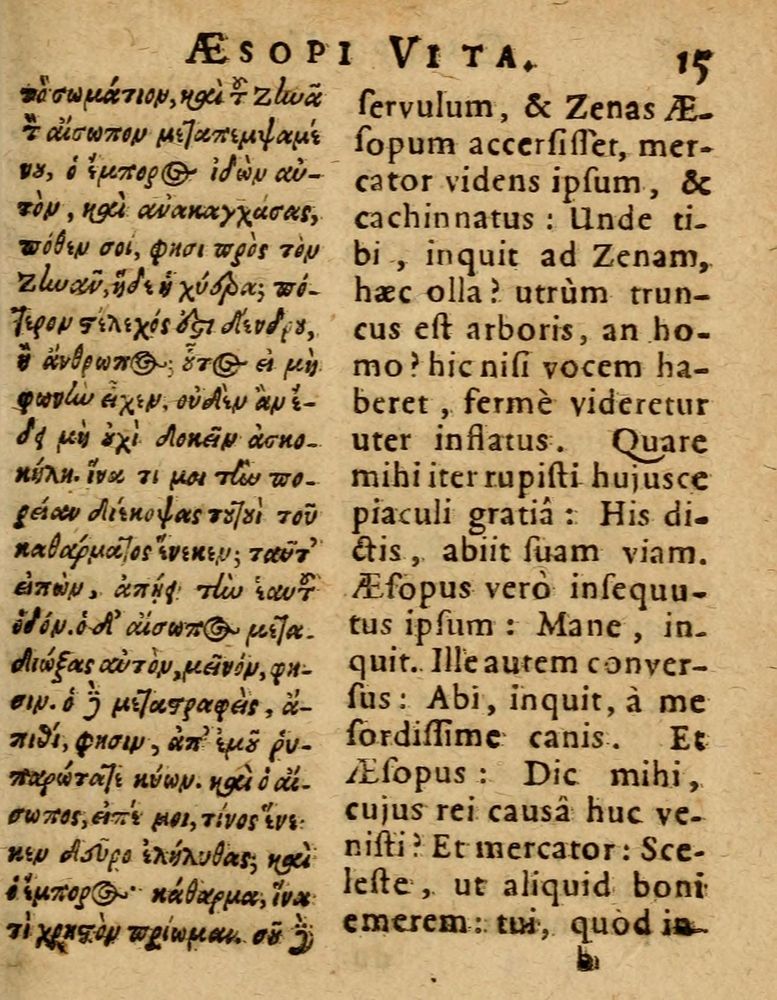 ÆSOPI VITA. 15
τὸ σωμάτιον, καὶ τ͂ Ζωᾶ
τ͂ αἴσωπον μεταπεμψαμέ-
νου, ὁ ἔμπορος ἰδὼν αὐ-
τὸν, καὶ ἀνακαγχάσας,
πόθεν σοι, φησι πρὸς τὸν
Ζωᾶν, ἥδε ἡ χύτρα; πό-
τερον στέλεχός ἐστι δένδρου,
ἢ ἄνθρωπος; οὗτος εἰ μὴ
φωνὴν εἶχεν, οὐδὲν ἂν ἔ-
δει μὴ οὐχὶ δοκεῖν ἀσκο-
κήλη. ἵνα τι μοι τὴν πο-
ρείαν διέκοψας τουτουὶ τοῦ
καθάρματος ἕνεκεν; ταῦτ'
εἰπὼν, ἀπῄει τὴν ἑαυτ͂
ὁδόν. ὁ δ' αἴσωπος μετα-
διώξας αὐτὸν, μεῖνόν, φη-
σιν. ὁ δὲ μεταστραφεὶς, ἄ-
πιθί, φησιν, ἀπ' ἐμοῦ ῥυ-
παρώτατε κύων. καὶ ὁ αἴ-
σωπος, εἰπέ μοι, τίνος ἕνε-
κεν δεῦρο ἐλήλυθας; καὶ
ὁ ἔμπορος· κάθαρμα, ἵνα
τὶ χρηστὸν πρίωμαι. σοῦ δὲ
servulum, & Zenas Æ-
sopum accersisset, mer-
cator videns ipsum, &
cachinnatus: Unde ti-
bi, inquit ad Zenam,
hæc olla? utrùm trun-
cus est arboris, an ho-
mo? hic nisi vocem ha-
beret, fermè videretur
uter inflatus. Quare
mihi iter rupisti hujusce
piaculi gratiâ: His di-
ctis, abiit suam viam.
Æsopus verò insequu-
tus ipsum: Mane, in-
quit. Ille autem conver-
sus: Abi, inquit, à me
sordissime canis. Et
Æsopus: Dic mihi,
cujus rei causâ huc ve-
nisti? Et mercator: Sce-
leste, ut aliquid boni
emerem: tui, quòd in-